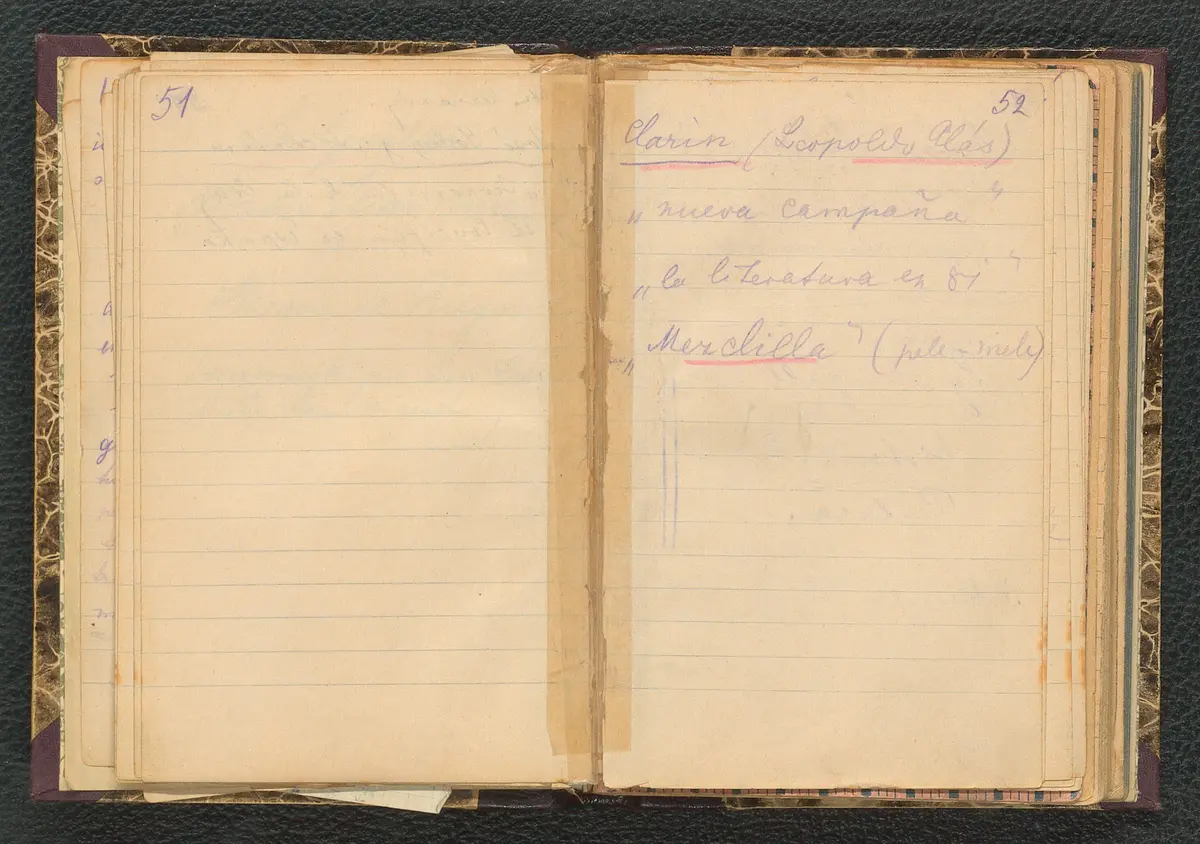 51
52
Clarin (Leopoldo Alás)
„ nueva campaña "
„ la literatura en 81 "
„ Mezclilla " (pele-mele)